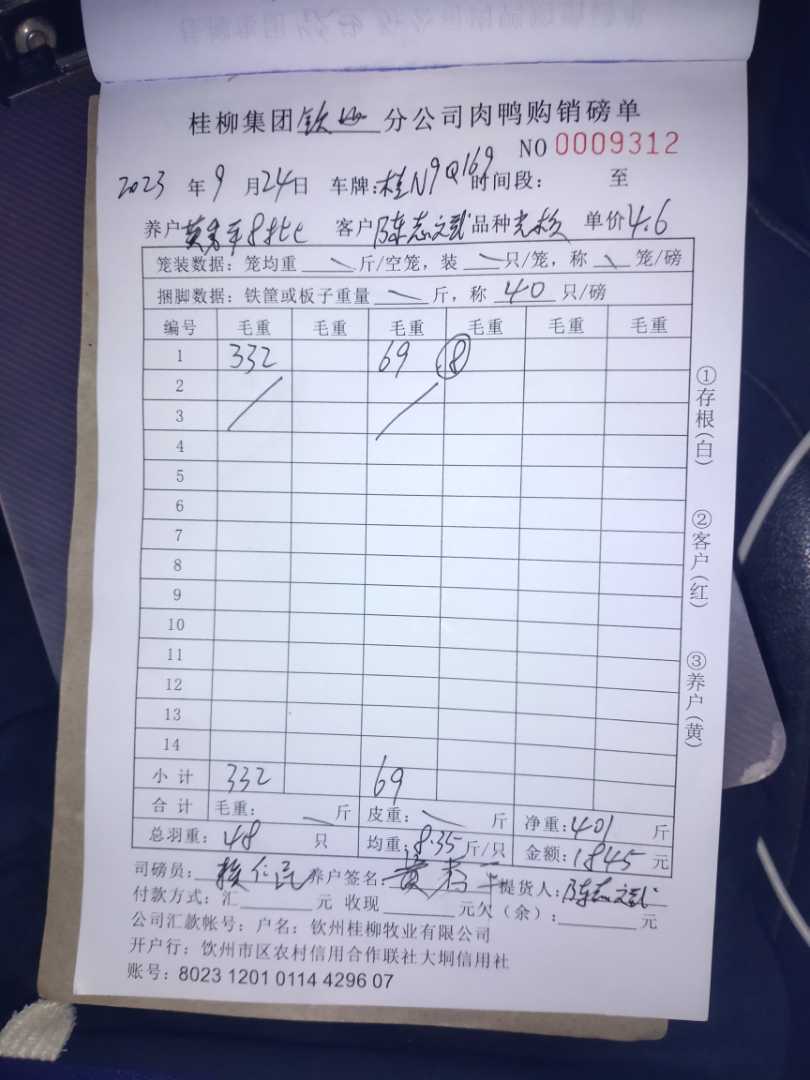 桂柳集团钦州分公司肉鸭购销磅单
NO 0009312
2023 年 9 月 24 日 车牌:桂N9Q169 时间段: 至
养户 黄 平8批 客户 陈志斌 品种 单价 4.6
笼装数据: 笼均重 斤/空笼, 装 只/笼, 称 笼/磅
捆脚数据: 铁筐或板子重量 斤, 称 40 只/磅
编号 毛重 毛重 毛重 毛重 毛重 毛重
1 332 69 8
2
3
4
5
6
7
8
9
10
11
12
13
14
小 计 332 69
合 计 毛重: 斤 皮重: 斤 净重:401 斤
总羽重: 48 只 均重:8.35 斤/只 金额:1845 元
司磅员: 仁民 养户签名:黄 平 提货人:陈志斌
付款方式: 汇 元 收现 元欠(余): 元
公司汇款帐号: 户名: 钦州桂柳牧业有限公司
开户行: 钦州市区农村信用合作联社大垌信用社
账号: 8023 1201 0114 4296 07
①存根(白) ②客户(红) ③养户(黄)